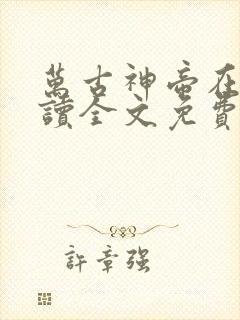 萬古神帝在
讀全文免費
許章強